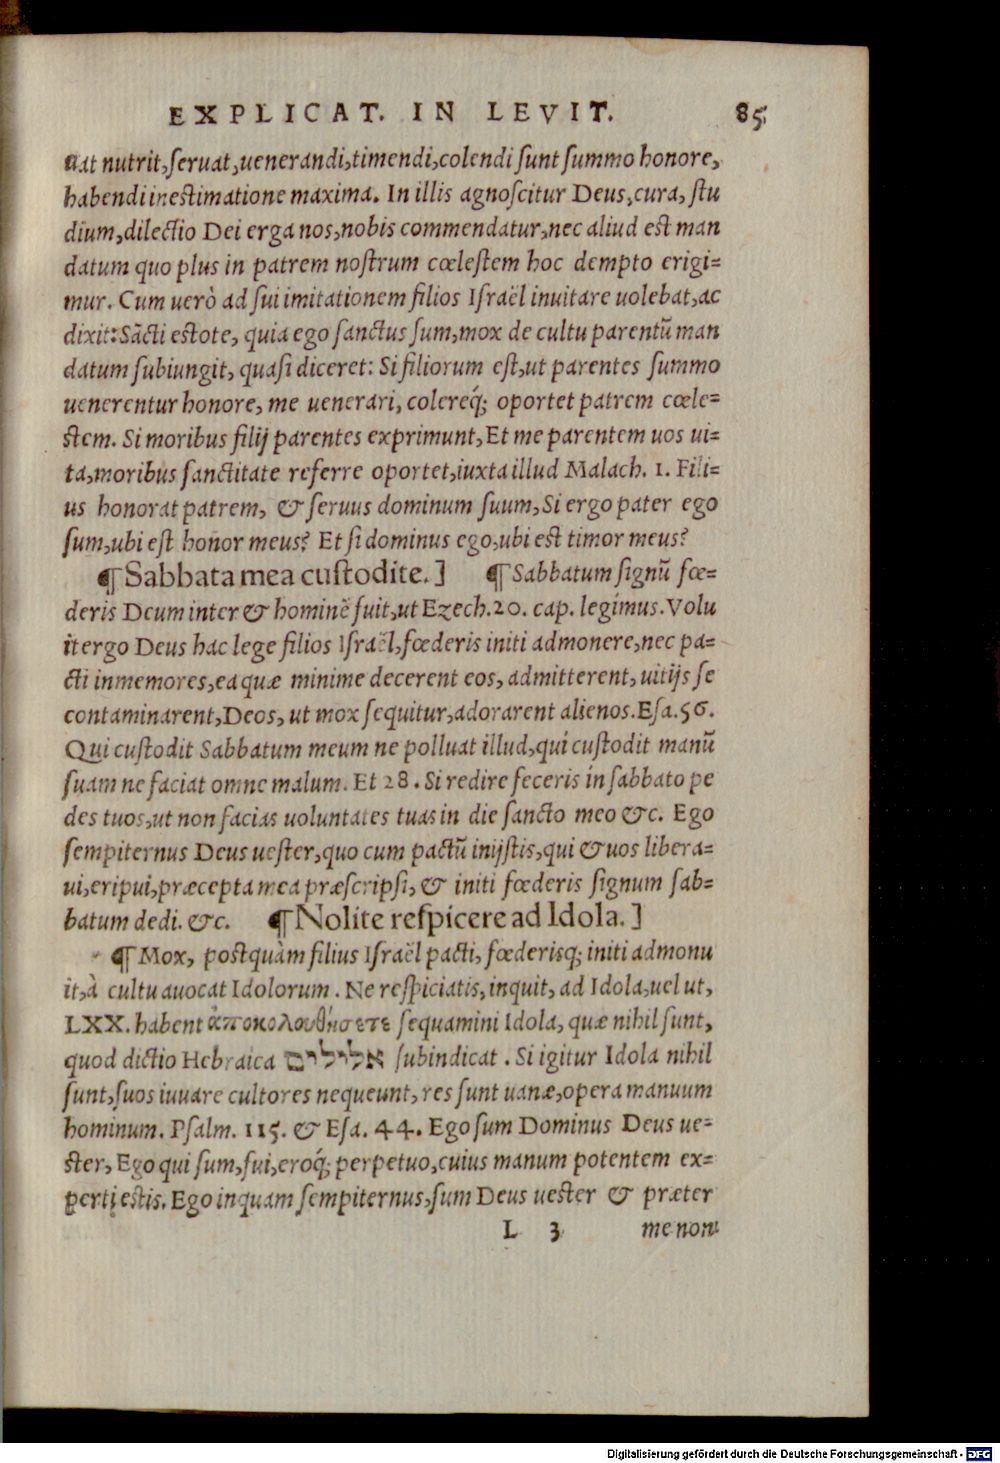 EXPLICAT. IN LEVIT. 85
uat nutrit, ſeruat, uenerandi, timendi, colendi ſunt ſummo honore,
habendi in eſtimatione maxima. In illis agnoſcitur Deus, cura, ſtu
dium, dilectio Dei erga nos, nobis commendatur, nec aliud eſt man
datum quo plus in patrem noſtrum cœleſtem hoc dempto erigi=
mur. Cum uerò ad ſui imitationem filios Iſraël inuitare uolebat, ac
dixit: Sācti eſtote, quia ego ſanctus ſum, mox de cultu parentū man
datum ſubiungit, quaſi diceret: Si filiorum eſt, ut parentes ſummo
uenerentur honore, me uenerari, colereq́; oportet patrem cœle=
ſtem. Si moribus filij parentes exprimunt, Et me parentem uos ui=
ta, moribus ſanctitate referre oportet, iuxta illud Malach. 1. Fili=
us honorat patrem, & ſeruus dominum ſuum, Si ergo pater ego
ſum, ubi eſt honor meus? Et ſi dominus ego, ubi eſt timor meus?
¶ Sabbata mea cuſtodite.] ¶ Sabbatum ſignū fœ=
deris Deum inter & hominē fuit, ut Ezech. 20. cap. legimus. Volu
it ergo Deus hac lege filios Iſraël, fœderis initi admonere, nec pa=
cti inmemores, ea quæ minime decerent eos, admitterent, uitijs ſe
contaminarent, Deos, ut mox ſequitur, adorarent alienos. Eſa. 56.
Qui cuſtodit Sabbatum meum ne polluat illud, qui cuſtodit manū
ſuam ne faciat omne malum. Et 28. Si redire feceris in ſabbato pe
des tuos, ut non facias uoluntates tuas in die ſancto meo &c. Ego
ſempiternus Deus ueſter, quo cum pactū inijſtis, qui & uos libera=
ui, eripui, præcepta mea præſcripſi, & initi fœderis ſignum ſab=
batum dedi. &c. ¶ Nolite reſpicere ad Idola.]
¶ Mox, poſtquàm filius Iſraël pacti, fœderisq; initi admonu
it, à cultu auocat Idolorum. Ne reſpiciatis, inquit, ad Idola, uel ut,
LXX. habent ἀποκολουθήσετε ſequamini Idola, quæ nihil ſunt,
quod dictio Hebraica אלילים ſubindicat. Si igitur Idola nihil
ſunt, ſuos iuuare cultores nequeunt, res ſunt uanæ, opera manuum
hominum. Pſalm. 115. & Eſa. 44. Ego ſum Dominus Deus ue=
ſter, Ego qui ſum, fui, eroq́; perpetuo, cuius manum potentem ex=
perti eſtis. Ego inquam ſempiternus, ſum Deus ueſter & præter
L 3 me non
Digitalisierung gefördert durch die Deutsche Forschungsgemeinschaft - DFG